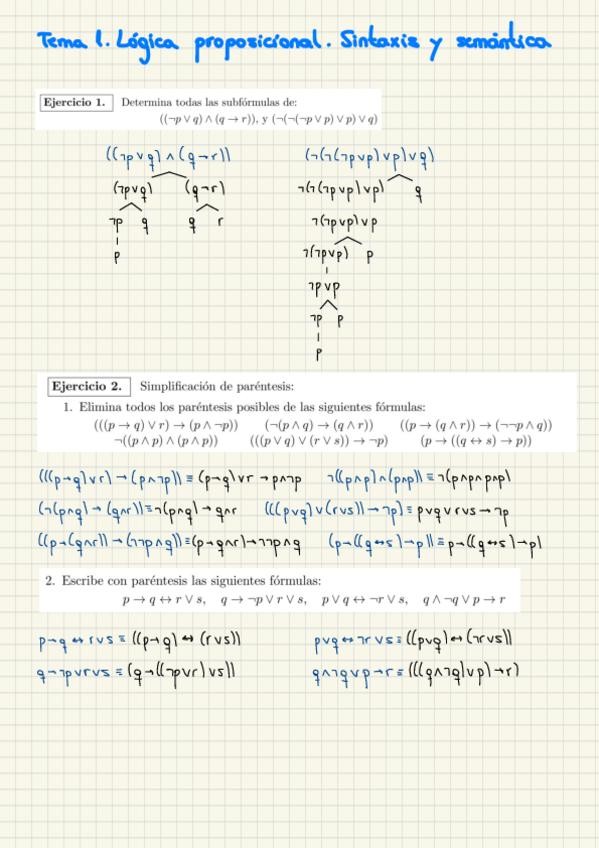 Tema 1. Lógica proposicional. Sintaxis y semántica
Ejercicio 1. Determina todas las subfórmulas de:
((¬p ∨ q) ∧ (q → r)), y (¬(¬(¬p ∨ p) ∨ p) ∨ q)
((¬p∨q) ∧ (q→r)) (¬(¬(¬p∨p)∨p)∨q)
(¬p∨q) (q→r) ¬(¬(¬p∨p)∨p) q
¬p q q r ¬(¬p∨p)∨p
p ¬(¬p∨p) p
¬p∨p
¬p p
p
Ejercicio 2. Simplificación de paréntesis:
1. Elimina todos los paréntesis posibles de las siguientes fórmulas:
(((p → q) ∨ r) → (p ∧ ¬p)) (¬(p ∧ q) → (q ∧ r)) ((p → (q ∧ r)) → (¬¬p ∧ q))
¬((p ∧ p) ∧ (p ∧ p)) (((p ∨ q) ∨ (r ∨ s)) → ¬p) (p → ((q ↔ s) → p))
(((p→q)∨r)→(p∧¬p)) ≡ (p→q)∨r → p∧¬p ¬((p∧p)∧(p∧p)) ≡ ¬(p∧p∧p∧p)
(¬(p∧q)→(q∧r)) ≡ ¬(p∧q)→q∧r (((p∨q)∨(r∨s))→¬p) ≡ p∨q∨r∨s→¬p
((p→(q∧r))→(¬¬p∧q)) ≡ (p→q∧r)→¬¬p∧q (p→((q↔s)→p)) ≡ p→((q↔s)→p)
2. Escribe con paréntesis las siguientes fórmulas:
p → q ↔ r ∨ s, q → ¬p ∨ r ∨ s, p ∨ q ↔ ¬r ∨ s, q ∧ ¬q ∨ p → r
p→q ↔ r∨s ≡ ((p→q) ↔ (r∨s)) p∨q ↔ ¬r∨s ≡ ((p∨q)↔(¬r∨s))
q→¬p∨r∨s ≡ (q→((¬p∨r)∨s)) q∧¬q∨p→r ≡ (((q∧¬q)∨p)→r)